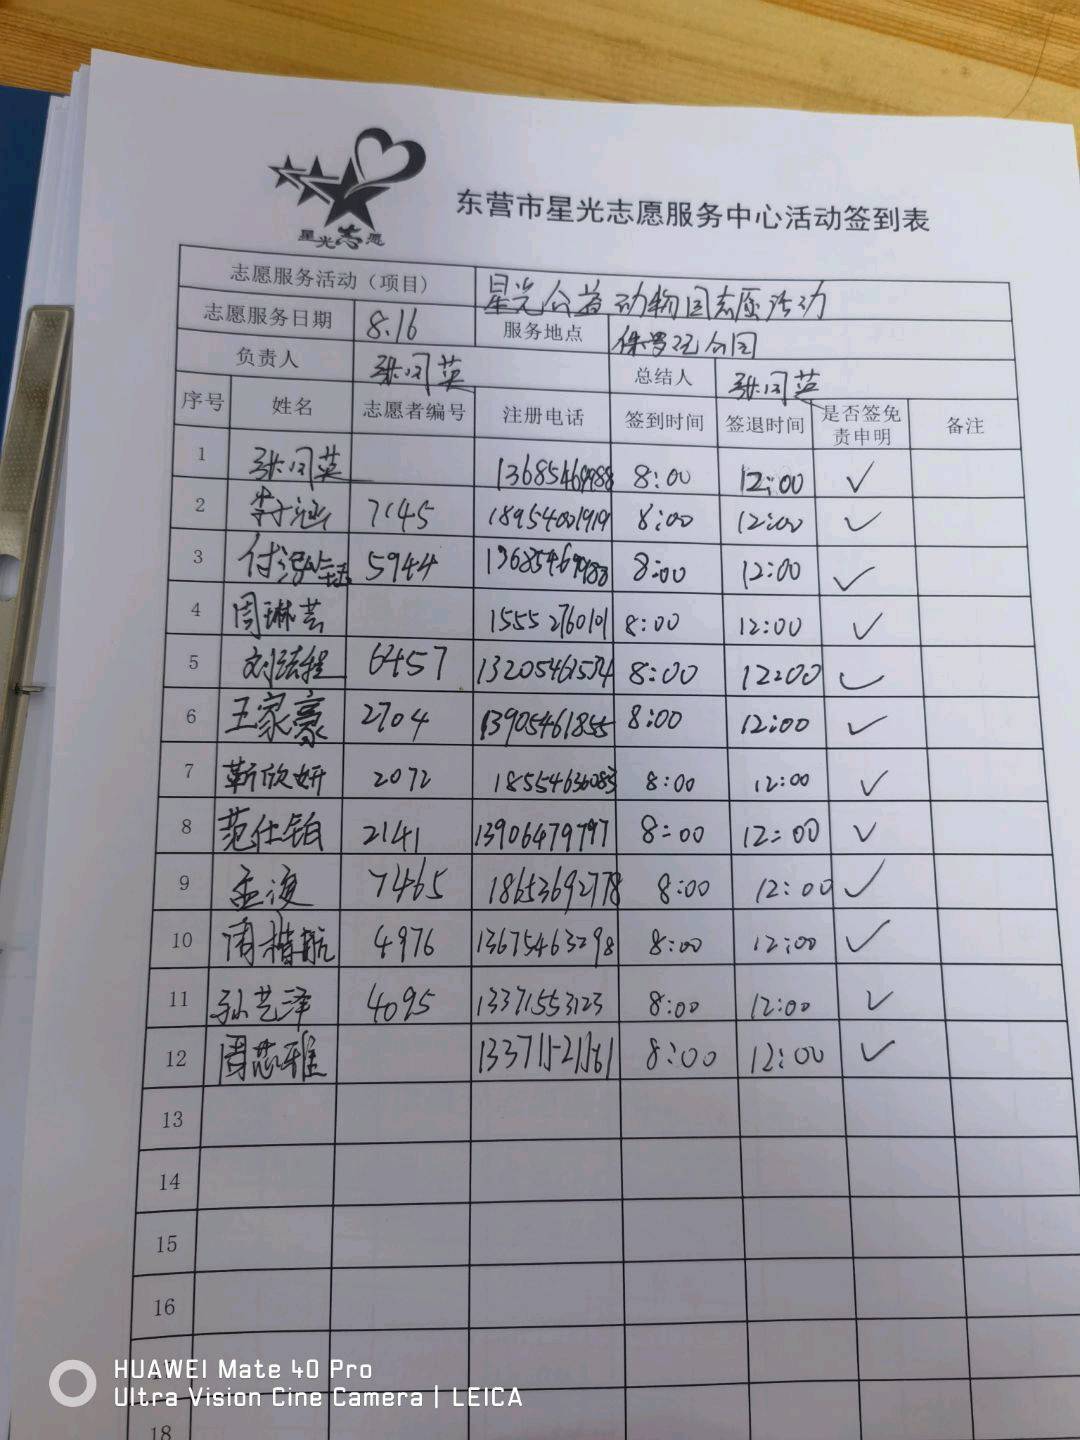 星光志愿
东营市星光志愿服务中心活动签到表
志愿服务活动（项目） 星光公益动物园志愿活动
志愿服务日期 8.16 服务地点 公园
负责人 张闪英 总结人 张闪英
序号 姓名 志愿者编号 注册电话 签到时间 签退时间 是否签免责申明 备注
1 张闪英 8:00 12:00 ✓
2 李涵 7145 18954001919 8:00 12:00 ✓
3 付泓钰 5944 8:00 12:00 ✓
4 周琳芸 15552760101 8:00 12:00 ✓
5 刘法程 6457 13205461574 8:00 12:00 ✓
6 王家豪 2704 13905461855 8:00 12:00 ✓
7 靳欣妍 2072 18554636083 8:00 12:00 ✓
8 范仕铂 2141 13906479797 8:00 12:00 ✓
9 孟 7465 18653692778 8:00 12:00 ✓
10 周楷航 4976 13675463298 8:00 12:00 ✓
11 孙艺泽 4095 13371553123 8:00 12:00 ✓
12 周蕊雅 8:00 12:00 ✓
13
14
15
16
18
HUAWEI Mate 40 Pro
Ultra Vision Cine Camera | LEICA